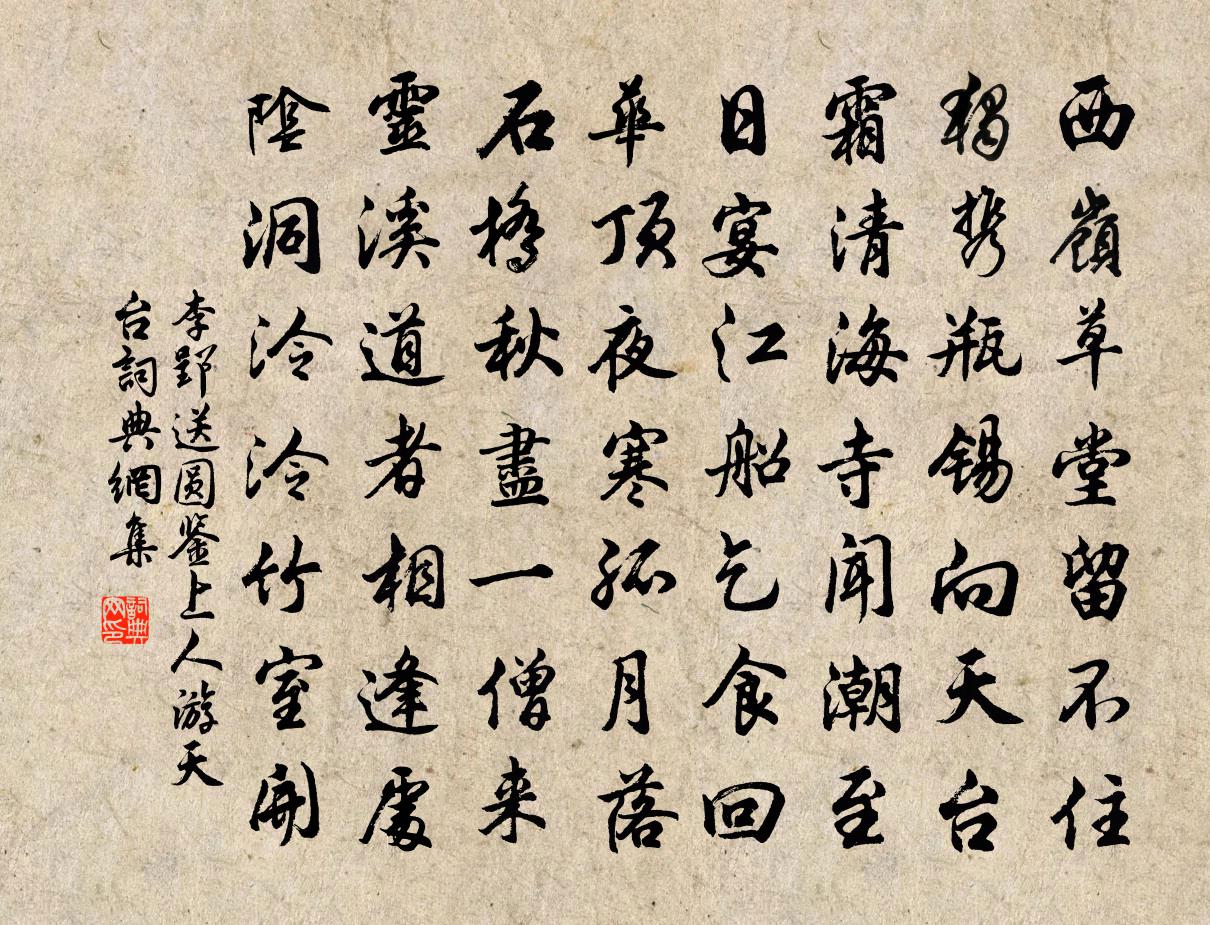 西嶺草堂留不住
獨携瓶錫向天台
霜清海寺聞潮至
日宴江船乞食回
華頂夜寒孤月落
石橋秋盡一僧来
靈溪道者相逢處
陰洞泠泠竹室開
李郢送圓鑒上人游天
台詞典網集
詞典
网印